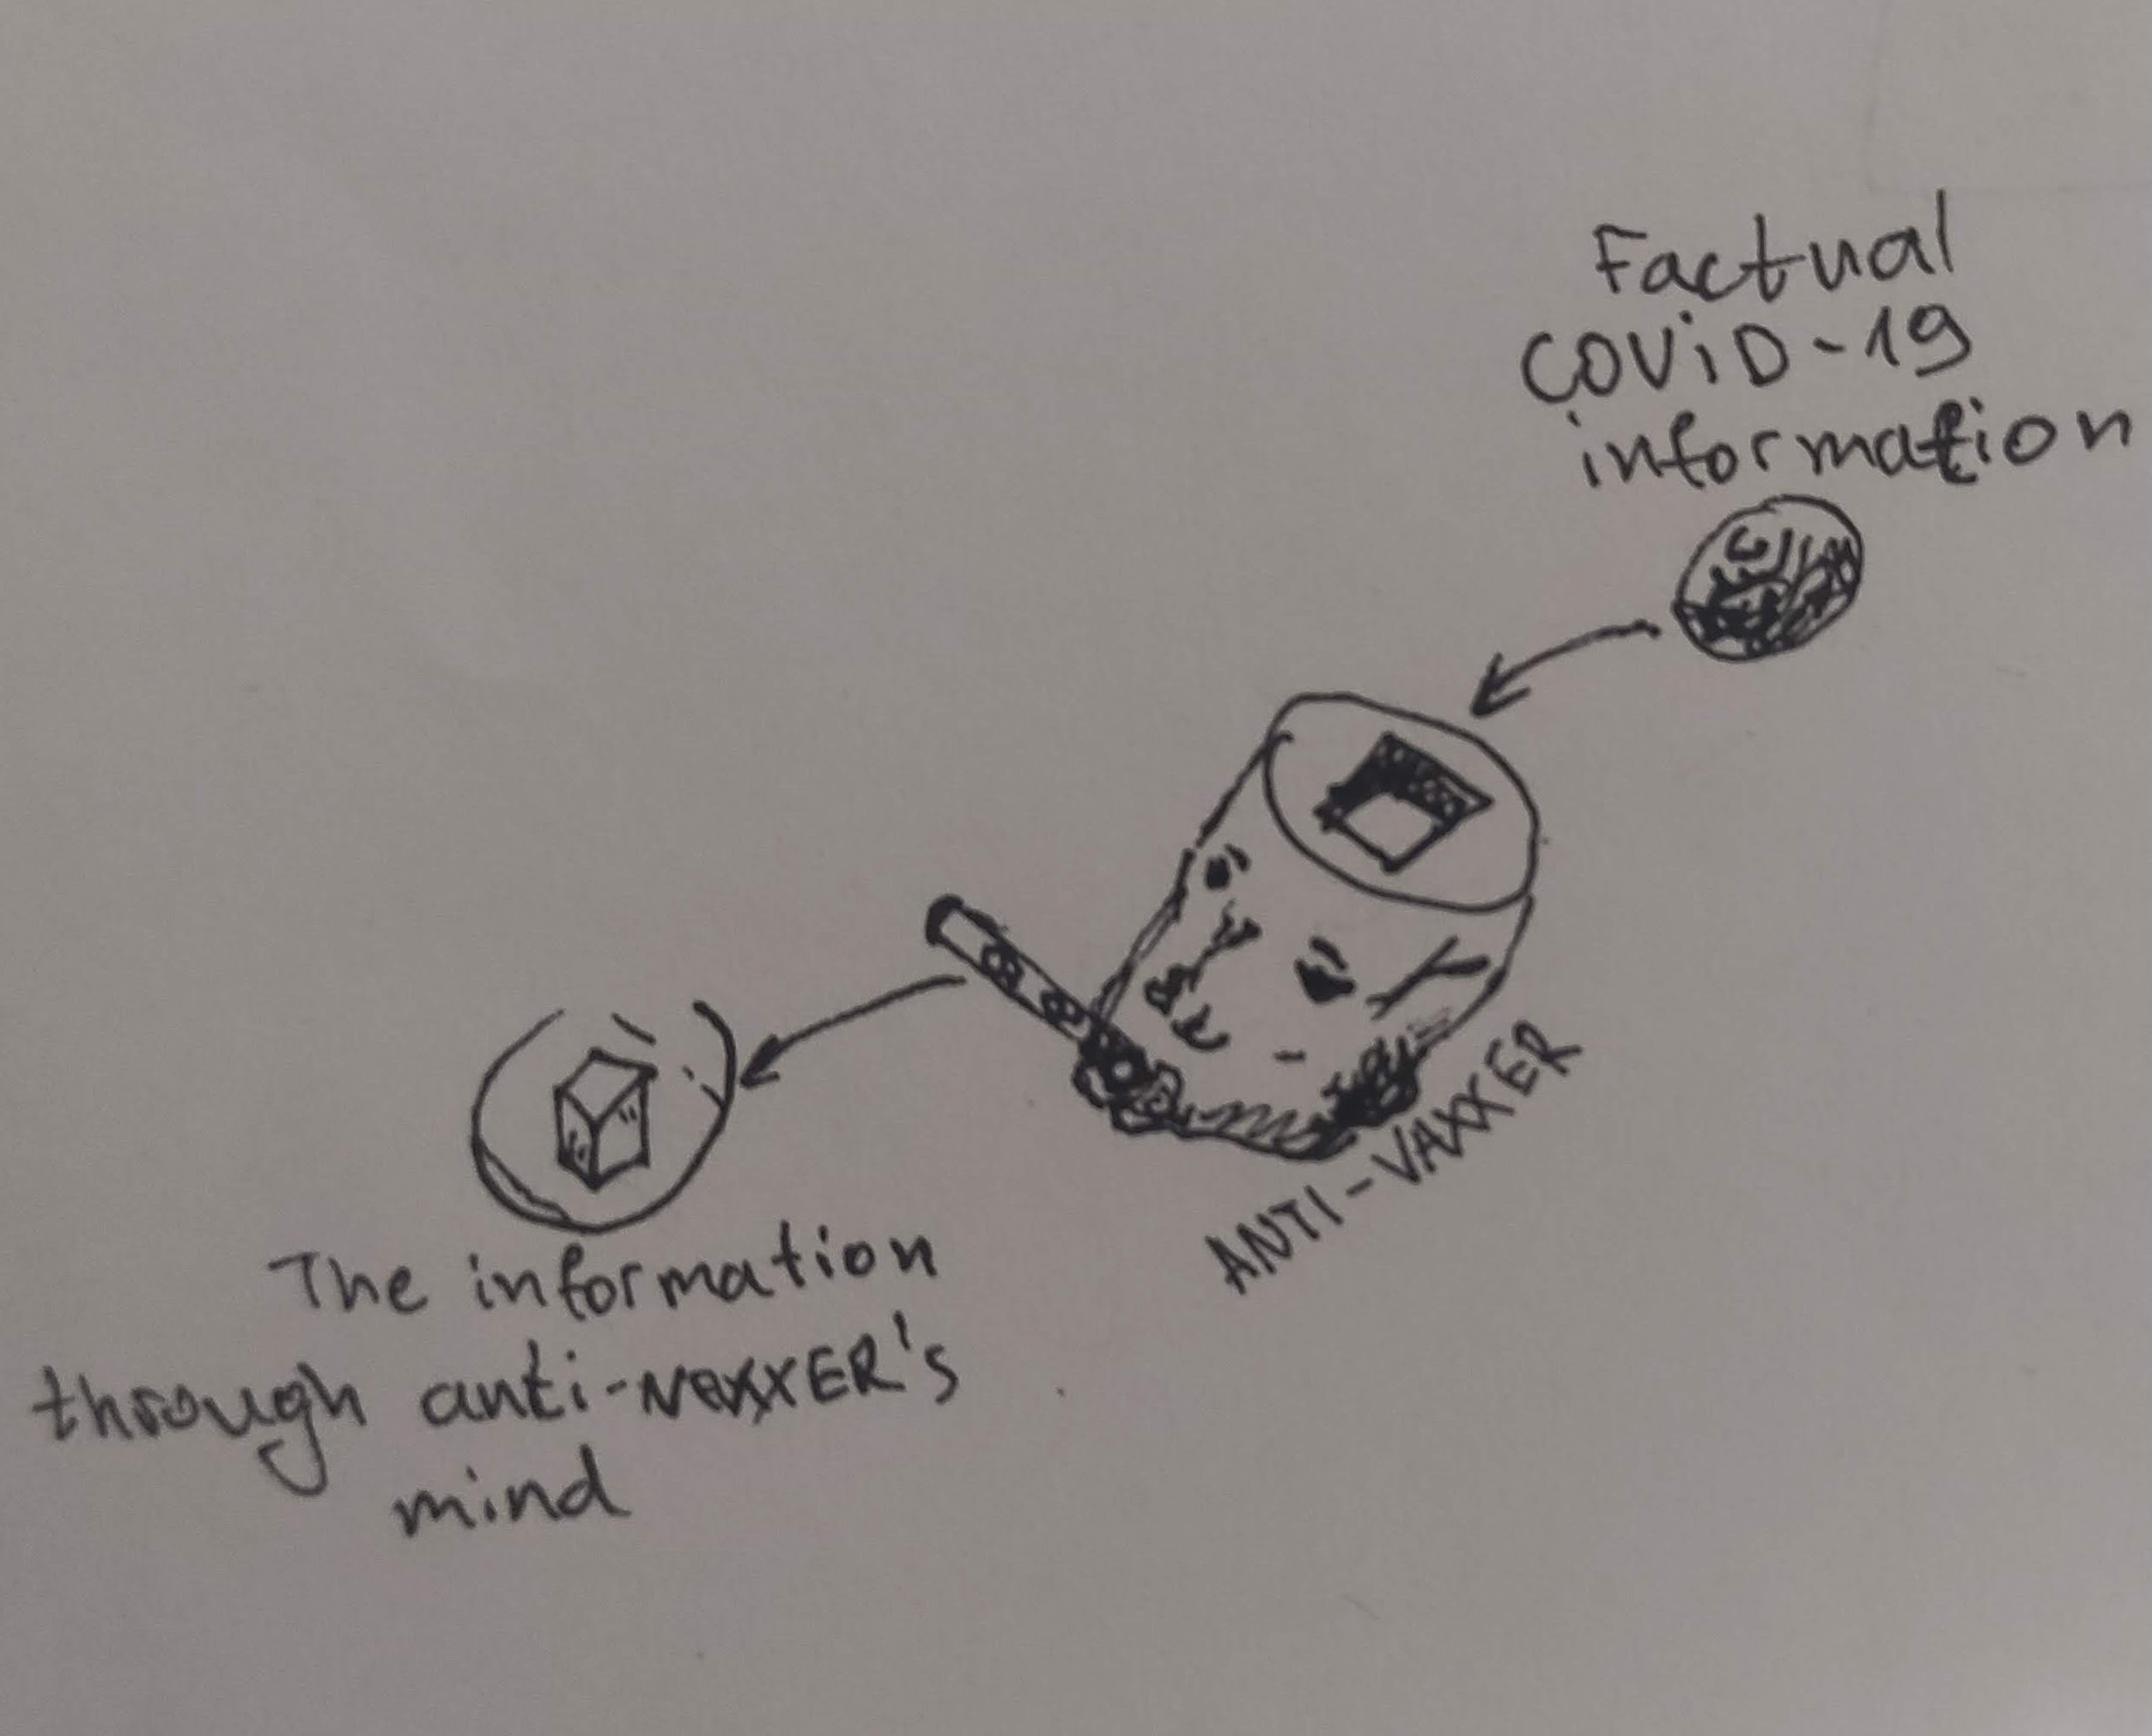 Factual
COViD-19
information
ANTI-VAXXER
The information
through anti-VAXXER's
mind